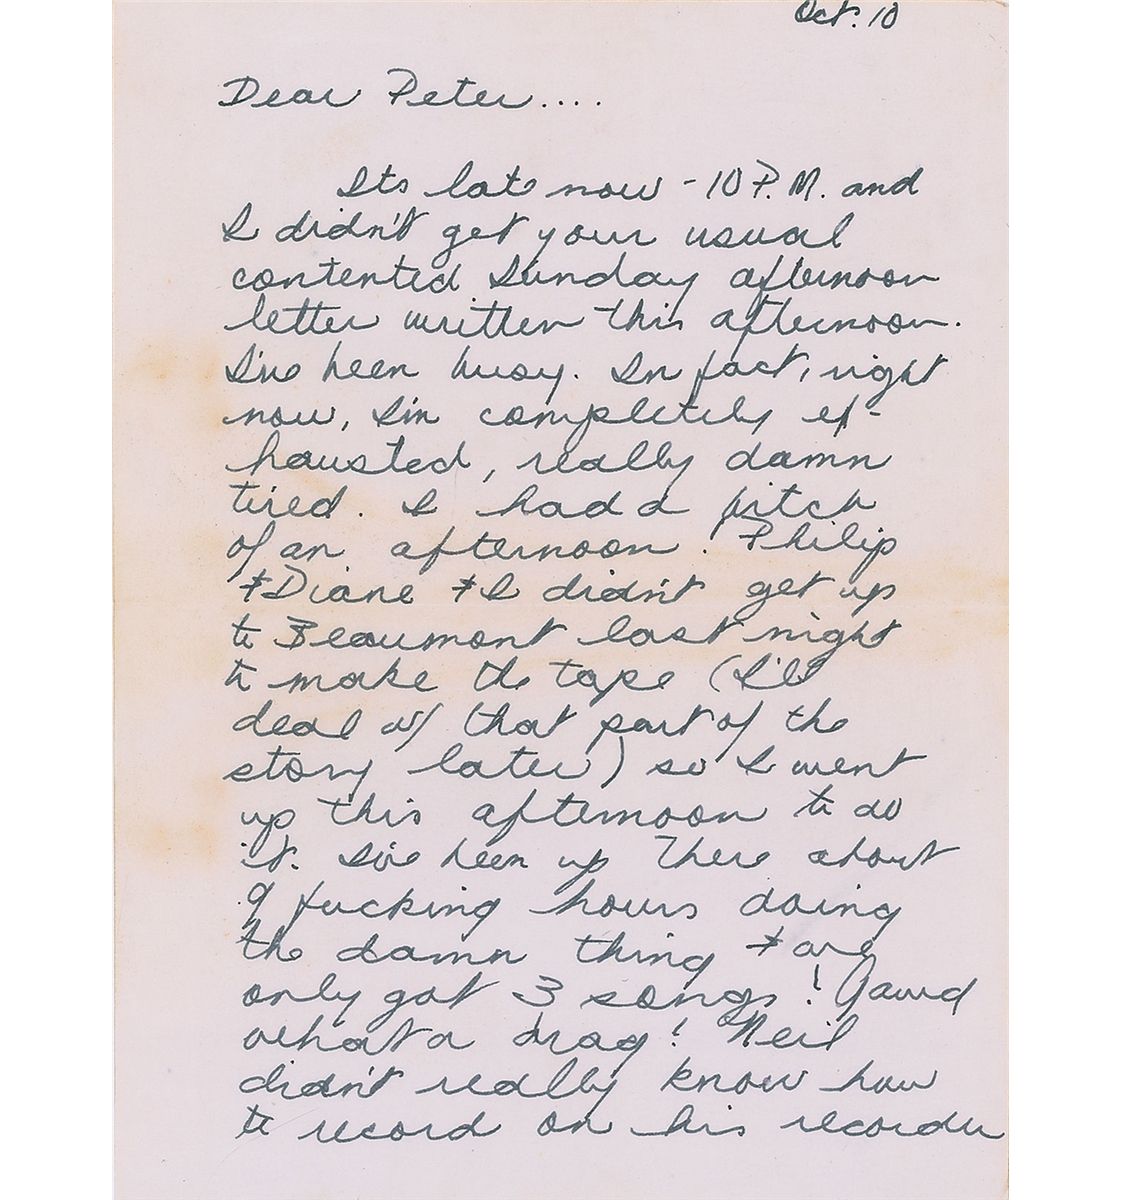 Oct. 10
Dear Peter....
Its late now - 10 P.M. and
I didn't get your usual
contented Sunday afternoon
letter written this afternoon.
I've been busy. In fact, right
now, I'm completely ex-
hausted, really damn
tired. I had a bitch
of an afternoon! Philip
& Diane & I didn't get up
to Beaumont last night
to make the tape (I'll
deal w/ that part of the
story later) so I went
up this afternoon to do
it. I've been up there about
9 fucking hours doing
the damn thing & we
only got 3 songs! Gawd
what a drag! Neil
didn't really know how
to record on his recorder